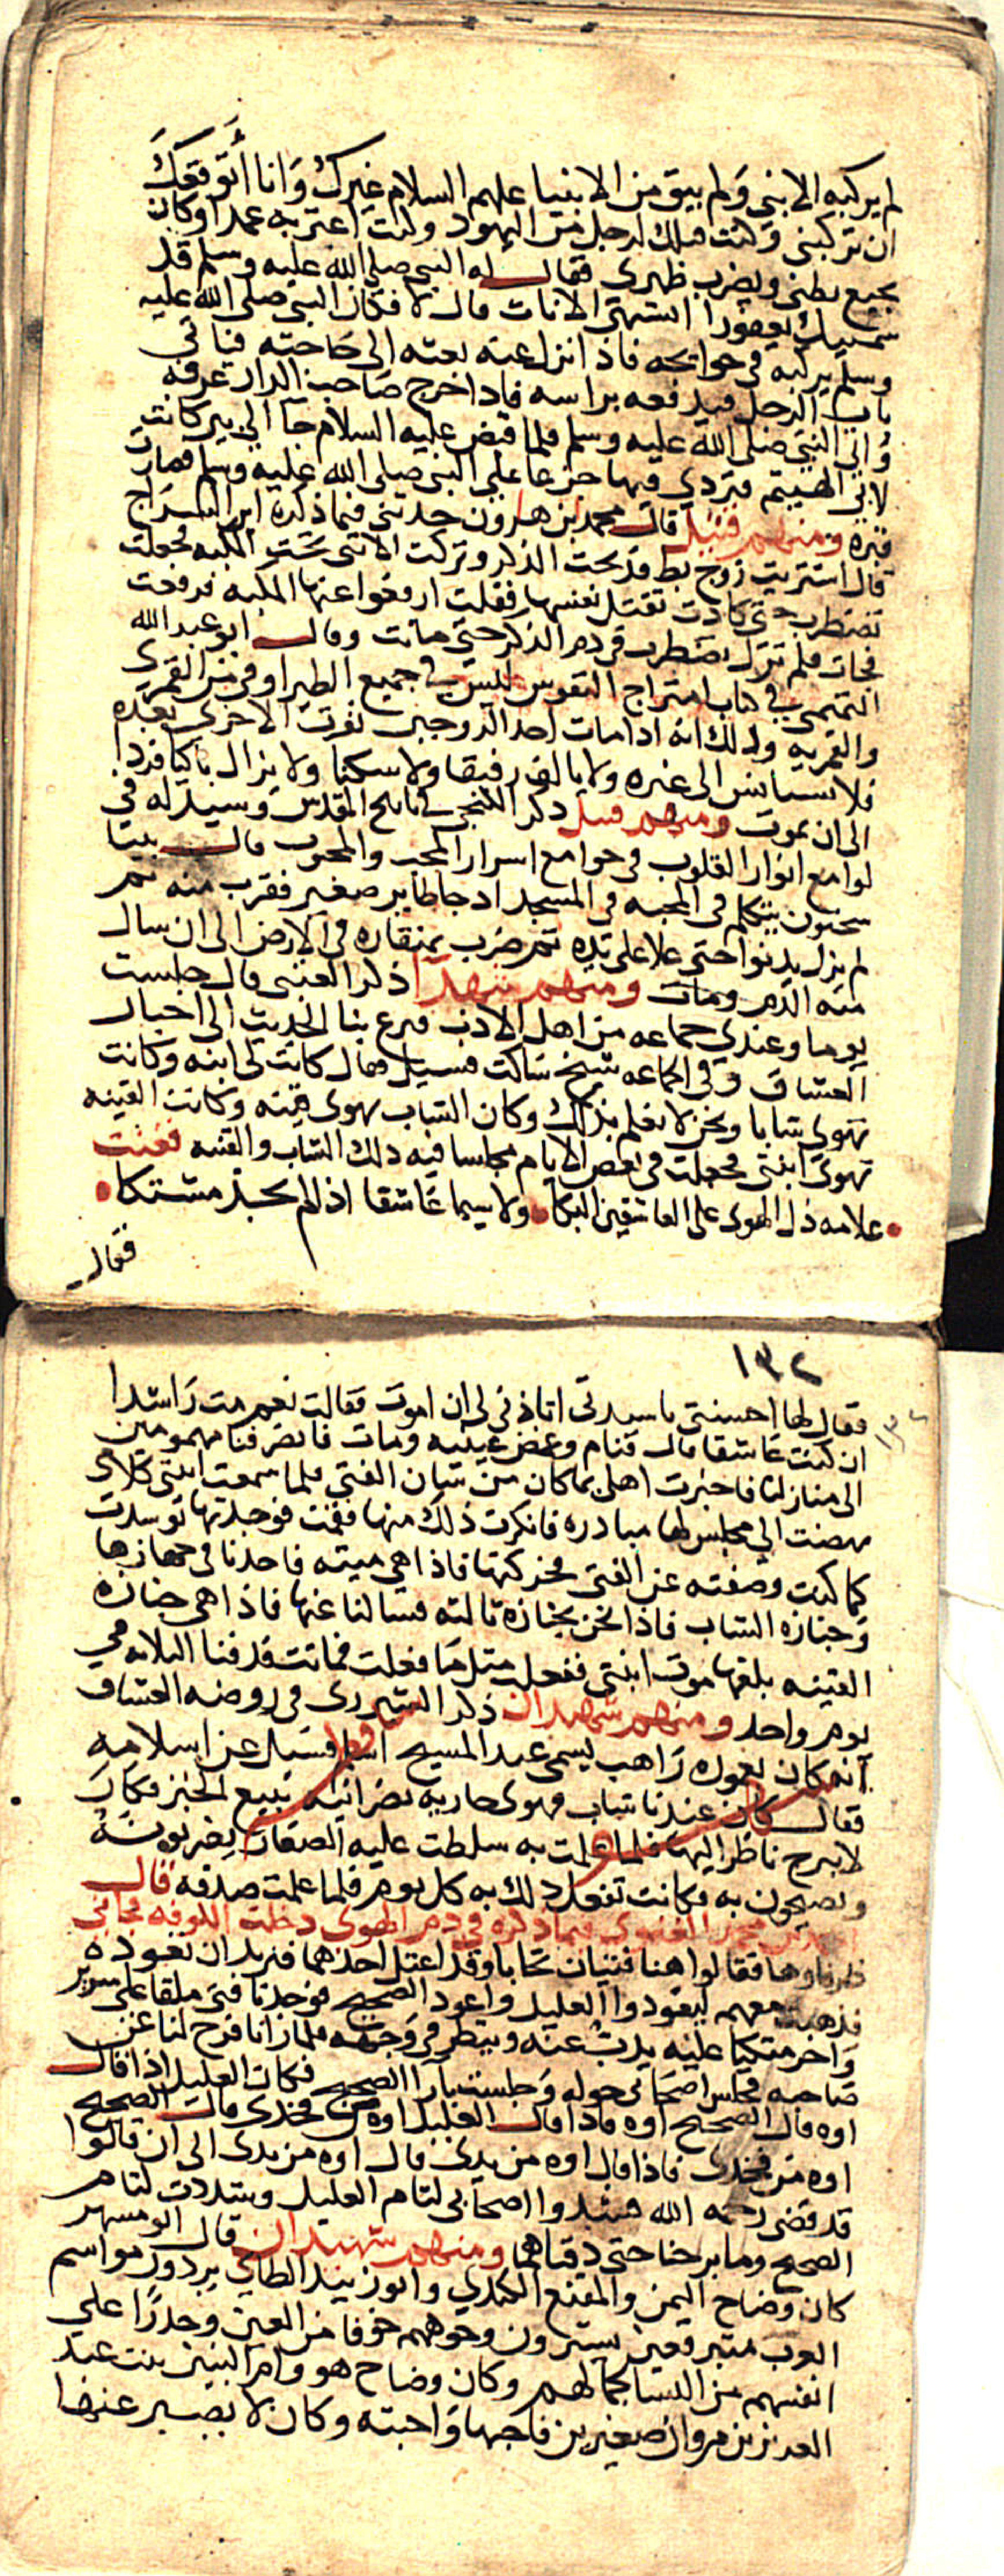 لم يركبه الا نبي ولم يبق من الانبيا عليهم السلام غيرك وانا اتوقعك
ان تركبني وكنت قبلك لرجل من اليهود وكنت اعثر به عمدا وكان
يجيع بطني ويضرب ظهري فقال له النبي صلى الله عليه وسلم قد
سميتك يعفورا اتشتهي الاناث قال لا فكان النبي صلى الله عليه
وسلم يركبه في حوايجه فاذا نزل عنه بعثه الى حاجته فياتي
باب الرجل فيدفعه براسه فاذا خرج صاحب الدار عرفه
واتى النبي صلى الله عليه وسلم فلما قبض عليه السلام جا الى بير كانت
لابي الهيثم فتردى فيها جزعا على النبي صلى الله عليه وسلم فصارت
قبره ومنهم قتيل قال محمد بن هارون حدثني فيما ذكره ابن السراج
قال اشتريت زوج بط فذبحت الذكر وتركت الانثى تحت المكبه فجعلت
تضطرب حتى كادت تقتل نفسها فقلت ارفعوا عنها المكبه فرفعت
فجات فلم تزل تضطرب في دم الذكر حتى ماتت وقال ابو عبد الله
التميمي في كتاب امتزاج النفوس ليس في جميع الطير اوفى من القمري
والقمريه وذلك انه اذا مات احد الزوجين نفرت الاخرى بعده
فلا تستانس الى غيره ولا يالف رفيقا ولا سكنا ولا يزال باكيا فردا
الى ان يموت ومنهم قتيل ذكر في تاريخ القدس وسيذله في
لوامع انوار القلوب في جوامع اسرار المحب والمحبوب قال بينا
سحنون يتكلم في المحبه في المسجد اذ جا طاير صغير فقرب منه ثم
لم يزل يدنوا حتى علا على يده ثم ضرب بمنقاره في الارض الى ان سال
منه الدم ومات ومنهم شهدا ذكر العتبي قال جلست
يوما وعندي جماعه من اهل الادب فرع بنا الحديث الى اخبار
العشاق وفي الجماعه شيخ ساكت فسيل فقال كانت لي ابنه وكانت
تهوى شابا ونحن لا نعلم بذلك وكان الشاب يهوى قينه وكانت القينه
تهوى ابنتي فجعلت في بعض الايام مجلسا فيه ذلك الشاب والقينه فغنت
علامه ذل الهوى على العاشقين البكا ولا سيما عاشقا اذا لم يجد مشتكا
فقال
١٣٢
فقال لها احسنتي يا سيدتي اتاذني لي ان اموت فقالت نعم مت راشدا
ان كنت عاشقا قال فنام وغمض عينيه ومات فانصرفنا مهمومين
الى منازلنا فاخبرت اهلي بما كان من شان الفتى فلما سمعت ابنتي كلامي
نهضت الى مجلس لها مبادره فانكرت ذلك منها فقمت فوجدتها توسدت
كما كنت وصفته عن الفتى فحركتها فاذا هي ميته فاخذنا في جهازها
وجنازه الشاب فاذا نحن بجنازه ثالثه فسالنا عنها فاذا هي جنازه
القينه بلغها موت ابنتي ففعلت مثل ما فعلت فماتت فدفنا الثلاثه في
يوم واحد ومنهم شهيدان ذكر الشيزري في روضه العشاق
انه كان بعموره راهب يسمى عبد المسيح اسلم فسيل عن اسلامه
فقال كان عندنا شاب فهوى جاريه نصرانيه تبيع الخبز فكان
لا يبرح ناظرا اليها فلما علمت به سلطت عليه الصغار يضربونه
ويصيحون به فكانت تفعل ذلك به كل يوم فلما علمت صدقه قال
محمد الغنوي فيما ذكره في ذم الهوى دخلت الكوفه فجاني
ظرفاوها فقالوا هنا فتيان تحابا وقد اعتل احدهما فنريد ان نعوده
فذهبت معهم ليعودوا العليل واعود الصحيح فوجدنا فتى ملقا على سرير
واخر متكيا عليه يذب عنه وينظر في وجهه فلما رانا فرح لنا عن
صاحبه فجلس اصحابي حوله وجلست بازا الصحيح فكان العليل اذا قال
اوه قال الصحيح اوه فاذا قال العليل اوه من فخذي قال الصحيح
اوه من فخذي فاذا قال اوه من يدي قال اوه من يدي الى ان قالوا
قد قضى رحمه الله فشدوا اصحابي لثام العليل وشددت لثام
الصحيح وما برحنا حتى دفناهما ومنهم شهيدان قال ابو مسهر
كان وضاح اليمن والمقنع الكندي وابو زبيد الطاي يردون مواسم
العرب متبرقعين يسترون وجوههم خوفا من العين وحذرا على
انفسهم من النسا لجمالهم وكان وضاح هو وام البنين بنت عبد
العزيز بن مروان صغيرين فاحبها واحبته وكان لا يصبر عنها